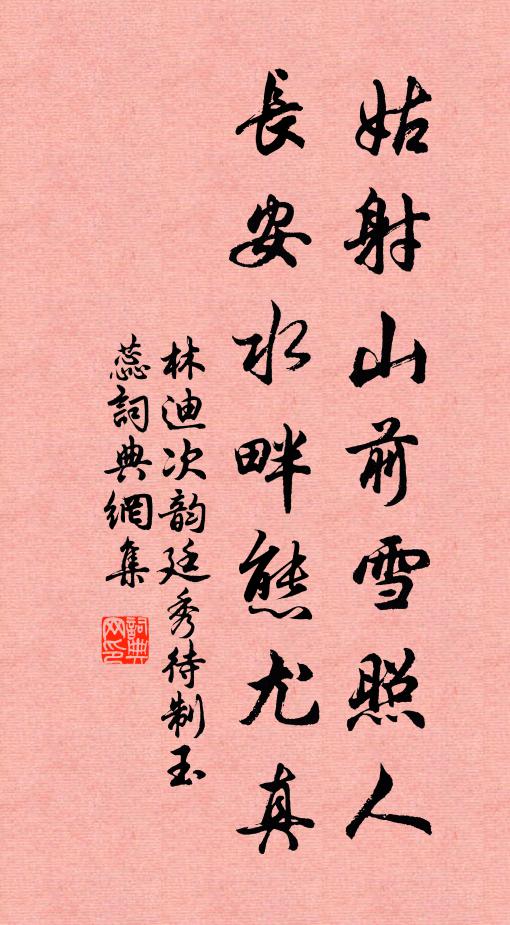 姑射山前雪照人
長安水畔態尤真
林迪次韵廷秀待制玉
蕊詞典網集
詞典网印